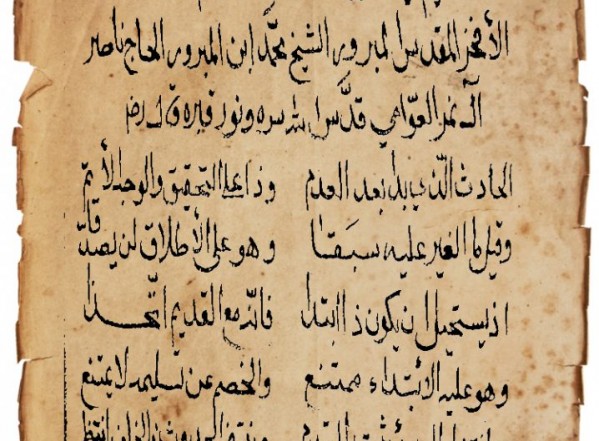 الأفخر المقدس المبرور الشيخ محمد ابن المبرور الحاج ناصر
آل نمر العوّامي قدّس الله سره ونور قبره قال رض
الحادث الذي بدا بعد العدم وذا على التحقيق والوجه الأتم
وقيل ما الغير عليه سبقا وهو على الأطلاق لن يصدّقا
اذ يستحيل ان يكون ذا ابتدا فانّه مع القديم اتّحدا
وهو عليه الأبتداء ممتنع والخصم عن تسليمه لا يمتنع